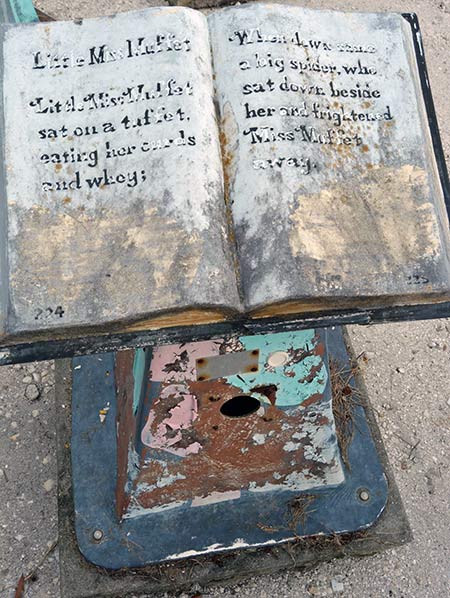 Little Miss Muffet
Little Miss Muffet
sat on a tuffet,
eating her curds
and whey;
224
When down came
a big spider, who
sat down beside
her and frightened
Miss Muffet
away.
225